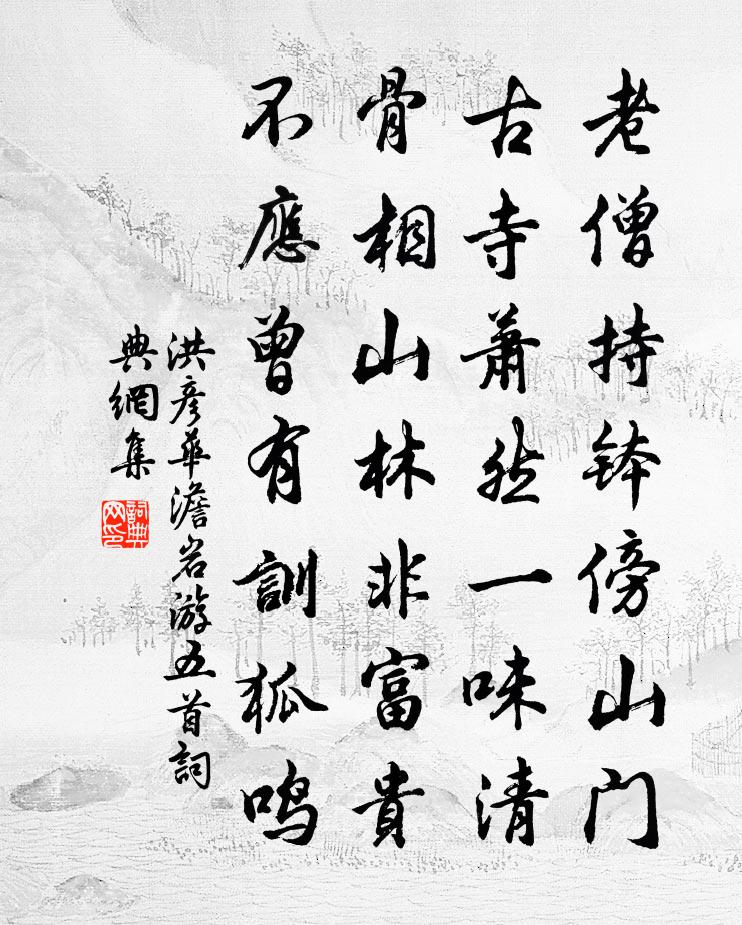 老僧持鉢傍山门
古寺萧然一味清
骨相山林非富貴
不應曾有訓狐鸣
洪彦華澹岩游五首詞
典網集
詞典
网印